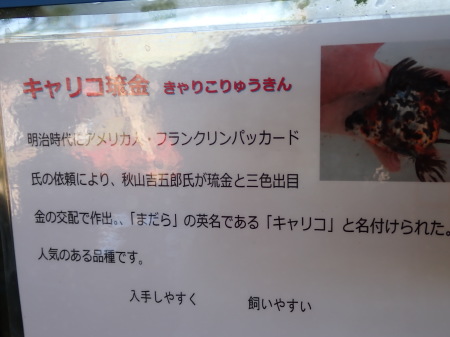 キャリコ琉金 きゃりこりゅうきん
明治時代にアメリカ人・フランクリンパッカード
氏の依頼により、秋山吉五郎氏が琉金と三色出目
金の交配で作出。、「まだら」の英名である「キャリコ」と名付けられた。
人気のある品種です。
入手しやすく 飼いやすい